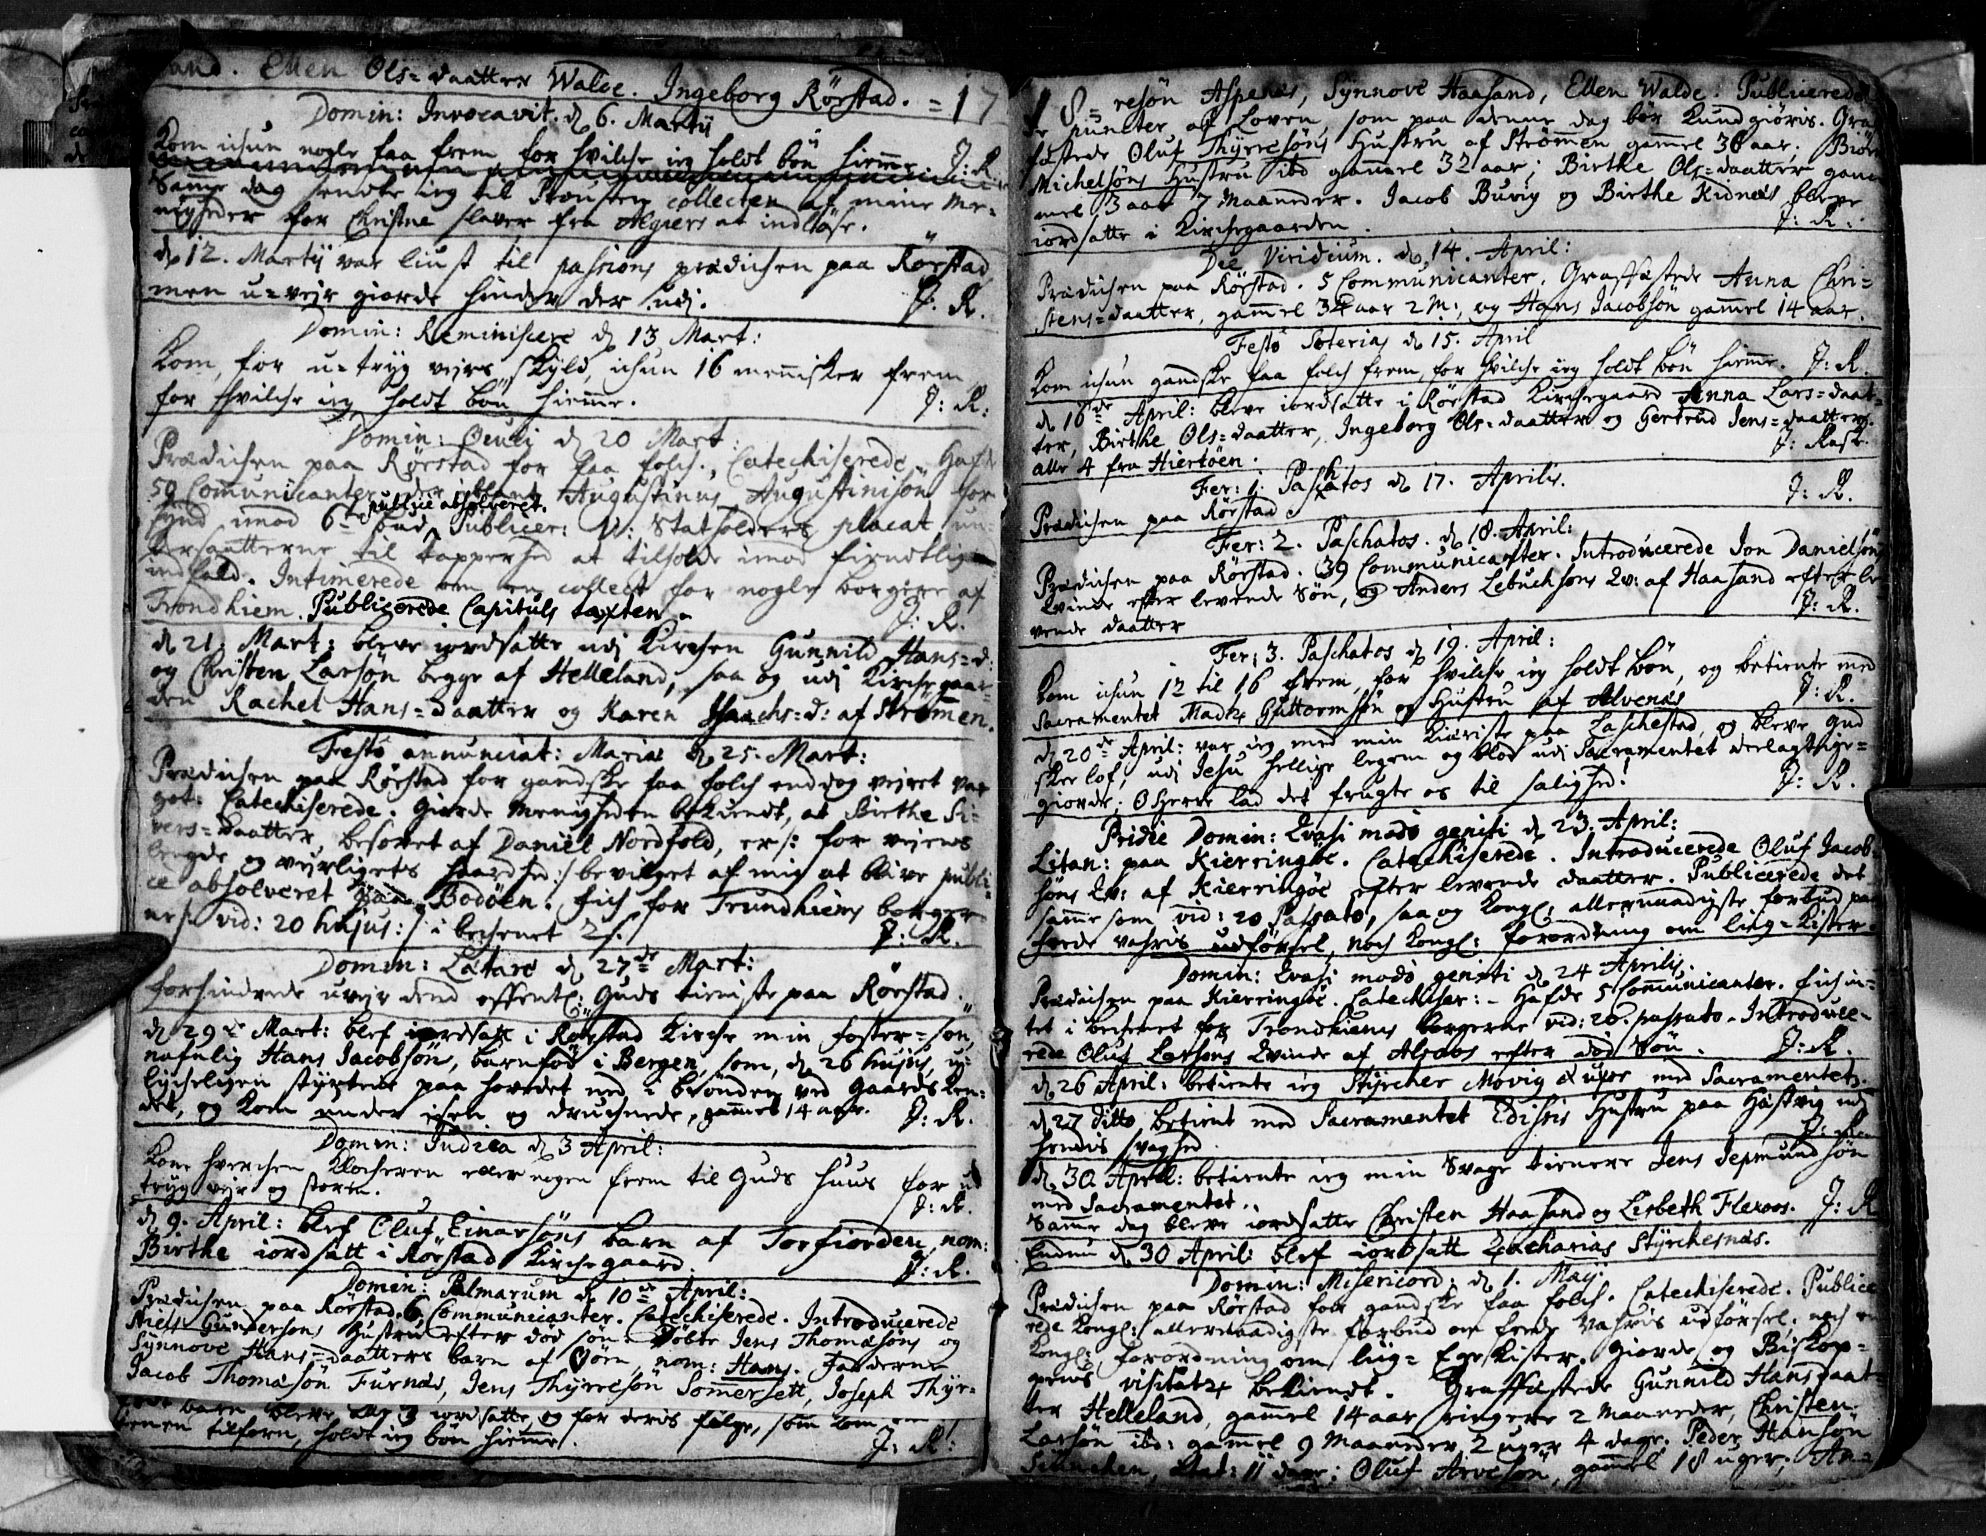 sand. Ellen Ols=daatter Walde. Ingeborg Rörstad. = 17
Domin: Invocavit. d. 6. Martij
Kom ickun nogle faa frem, for hvilche ieg holdt bön hiemme. J: R.
Samme dag sendte ieg til Prousten collecten af mine me-
nigheder for Christne slaver fra Algiers at indlöse.
d. 12. Martij var liust til passions prædichen paa Rörstad
men u=vejr giorde hinder der udj. J: R.
Domin: Reminiscere d. 13 Mart:
Kom, for u=tryg vejrs skyld, ickun 16 mennisker frem
for hvilche ieg holdt bön hiemme. J: R:
Domin: Oculi d. 20 Mart:
Prædichen paa Rörstad for faa folch. Catechiserede. Hafde
59 Communicanter, der iblant Augustinus Augustinisön for
publice absolveret.
synd imod 6te bud. Publicer: V: Statholders placat un-
dersaatterne til tapperhed at tilholde imod fiendtlig
indfald. Intimerede om en collect for nogle borgere af
Trondhiem. Publicerede Capituls taxten. J: R.
d. 21. Mart: bleve iordsatte udj Kirchen Gunnild Hans=d:
og Christen Larsön begge af Helleland, saa og udj Kirchegaar-
den Rachel Hans=daatter og Karen Isaachs=d: af Strömen.
Festo annunciat: Mariæ d. 25. Mart:
Prædichen paa Rörstad for gandske faa folch enddog vejret var
got. Catechiserede. Giorde Menigheden bekiendt, at Birthe Si-
vers=daatter, besovet af Daniel Nordfold, er /: for vejens
lengde og vejrligets haardhed :/ bevilget af mig at blive publi-
ce absolveret paa Bodöen. fich for Trundhiems borger-
ne /: vid: 20 hujus :/ i bechenet 2 /. J: R.
Domin: Lætare d. 27de Mart:
forhindrede uvejr dend offentl: Guds tieniste paa Rörstad.
d. 29de Mart: blef iordsatt i Rörstad Kirche min foster=sön,
nafnlig Hans Jacobsön, barnföd i Bergen, som, d. 26 hujus, u-
lycheligen styrtede paa hovedet ned i brönden ved Gaards len-
det, og kom under isen og druchnede, gammel 14 aar. J: R.
Domin: Judica d. 3 April:
Kom hverchen Klocheren eller nogen frem til Guds huus for u-
tryg vejr og storm. J: R.
d. 9. April: blef Oluf Einersöns barn af Torfiorden, nom:
Birthe iordsatt i Rörstad Kirchegaard. J: R.
Domin: Palmarum d. 10de April:
Prædichen paa Rörstad. 6 Communicanter. Catechiserede. Introducerede
Niels Gundersöns Hustru efter död sön. Döbte Jens Thomasöns og
Synnove Hans=daatters barn af Örn, nom: Hans. Fadderne
Jacob Thomasön Furnæs, Jens Thyrresön Sommersett, Joseph Thyr-
barn bleve iordsatte, og for deris fölge, som kom
tilforn, holdt ieg bön hiemme. J: R:
18= resön Aspenæs, Synnove Haasand, Ellen Walde. Publicerede
de puncter af Loven som paa denne dag bör kundgiöris. Graf-
fæstede Oluf Thyrresöns Hustru af Strömen gammel 36 aar, Biörn
Michelsöns Hustru ibd gammel 32 aar; Birthe Ols=daatter gam-
mel 3 aar 7 Maaneder. Jacob Buvig og Birthe Kidnæs bleve
iordsatte i Kirchegaarden. J: R:
Die Viridium. d. 14. April:
Prædichen paa Rörstad. 5 Communicanter. Graffæstede Anna Chri-
stens=daatter, gammel 34 aar 2 M:, og Hans Jacobsön gammel 14 aar.
Festo Soterias d. 15. April
Kom ickun gandske faa folch frem, for hvilche ieg holdt bön hiemme. J: R.
d. 16de April: bleve iordsatte i Rörstad Kirchegaard Anna Lars=daat-
ter, Birthe Ols=daatter, Ingeborg Ols=daatter og Gertrud Jens=daatter.
alle 4 fra Hiertöen. J: Rask.
Fer: 1. Paschatos d. 17. Aprilis.
Prædichen paa Rörstad. J: R.
Fer: 2. Paschatos. d. 18. April:
Prædichen paa Rörstad. 39 Communicanter. Introducerede Jon Danielsöns
Kvinde efter levende Sön, og Anders Lebuchsöns Qv: af Haasand efter le-
vende daatter J: R.
Fer: 3. Paschatos d. 19. April:
Kom ickun 12 til 16 frem, for hvilche ieg holdt bön, og betiente med
Sacramentet Mads Guttormsön og Hustru af Alvenæs J: R.
d. 20de April: var ieg med min Kiæriste paa Laschestad, og bleve, Gud
skee lof, udj Jesu hellige legem og blod udj Sacramentet deelagtige-
giorde. O Herre lad det frugte os til salighed! J: R.
Pridie Domin: Qvasi modo geniti d. 23. April:
Litan: paa Kierringöe. Catechiserede. Introducerede Oluf Jacob-
söns Qv: af Kierringöe efter levende daatter. Publicerede det
samme som vid: 20 Passato, saa og Kongl: allernaadigste forbud paa
fræde vahris udförsel, noch Kongl: forordning om liig=Kister.
Domin: Qvasi modo geniti d. 24 Aprilis.
Prædichen paa Kierringöe. Catechiser: - Hafde 5 Communicanter. fich in-
tet i bechenet for Trondhiems borgerne vid: 20. passato. Introduce-
rede Oluf Larsöns Qvinde af Alsaas efter död Sön. J: R.
d. 26 April: betiente ieg Styrcher Movig & uxor med Sacramentet.
d. 27 ditto betient med Sacramentet Edisis Hustru paa Hastvig udj
hendis svaghed J: R.
d. 30. April: betiente ieg min Svage tienere Jens Jepmundsön
med Sacramentet.
Samme dag bleve iordsatte Christen Haasand og Lisbeth Flexoos. J: R
Endnu d. 30 April: blef iordsatt Zacharias Styrchesnæs.
Domin: Misericord: d. 1. Maij
Prædichen paa Rörstad for gandske faa folch. Catechiserede. Publice-
rede Kongl: allernaadigste forbud om fræde Vahris udförsel. noch en
Kongl: forordning om liig= Ege Kister. Giorde og Biskop-
pens visitatz bekiendt. Graffæstede Gunnild Hansdaat-
ter Helleland, gammel 14 aar ringere 2 Maaneder, Christen
Larsön ibd: gammel 9 Maaneder, 2 uger 4 dage. Peder Hansön
ætat: 11 dage; Oluf Arvesön, gammel 18 uger; An=